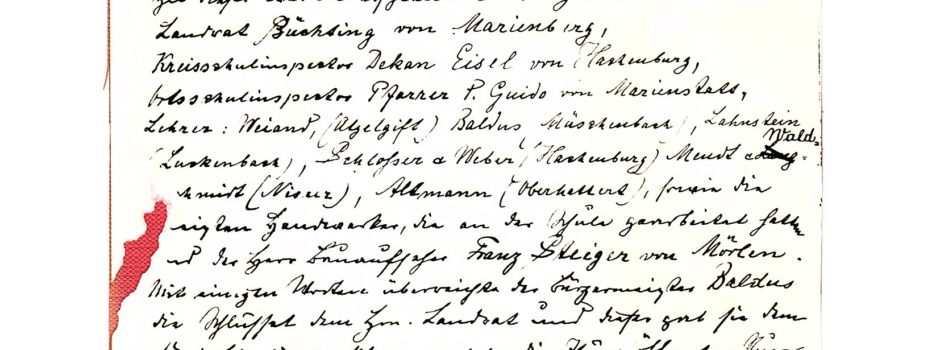 Landrat Büchting von Marienberg,
Kreisschulinspector Dekan Eisel von Hachenburg,
Ortsschulinspector Pfarrer P. Guido von Marienstatt,
Lehrer: Weiand, (Atzelgift) Baldus (Müschenbach), Lahnstein
(Luckenbach), Schlosser & Weber (Hachenburg) Mendt & Wald-
schmidt (Nister), Altmann (Oberhattert), sowie die
Handwerker, die an der Schule gearbeitet hatten
und der Herr Bauaufseher Franz Steiger von Mörlen.
Mit einigen Worten überreichte der Bürgermeister Baldus
die Schlüssel dem Hrn. Landrat und dieser gab sie dem